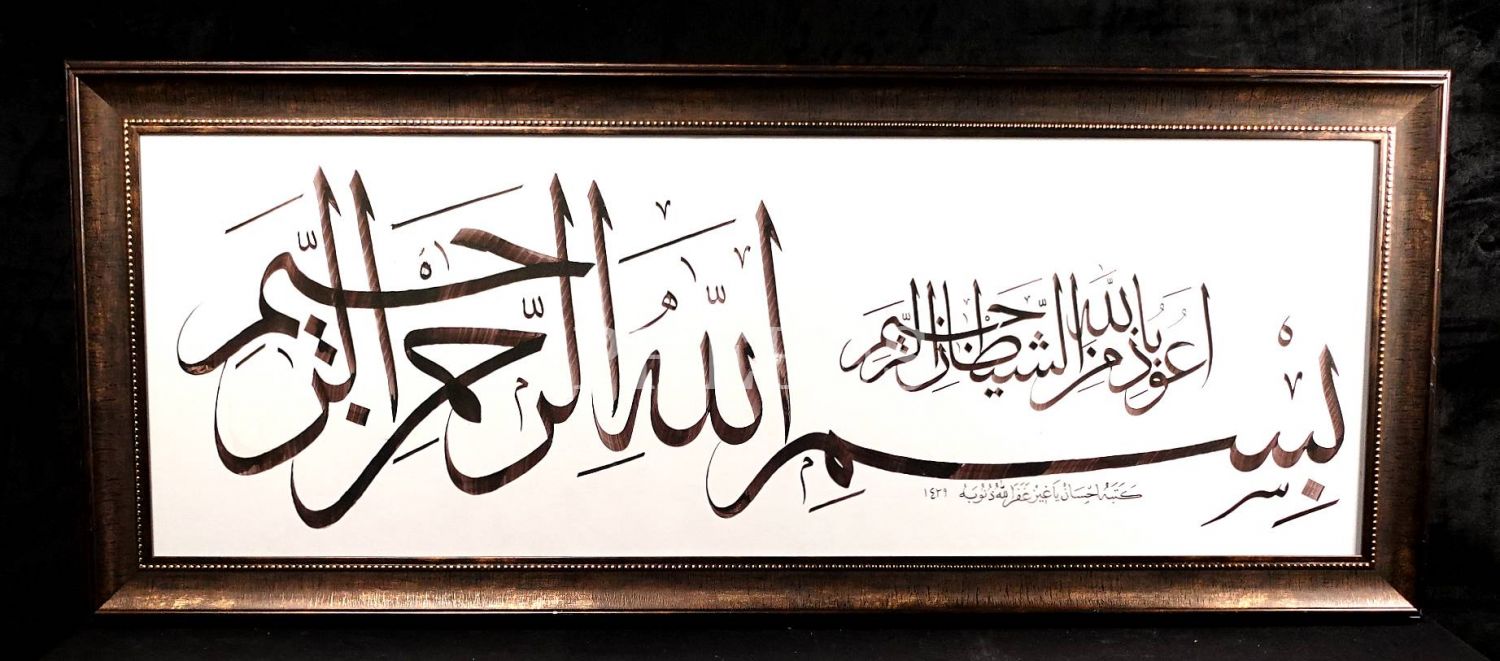 اعُوذُ بِاللّٰهِ مِنَ الشَّيْطَانِ الرَّجِيمِ
بِسْمِ اللّٰهِ الرَّحْمٰنِ الرَّحِيمِ
كَتَبَهُ احْسَانْ غَفَرَ اللّٰهُ ذُنُوبَهُ ١٤٢٩